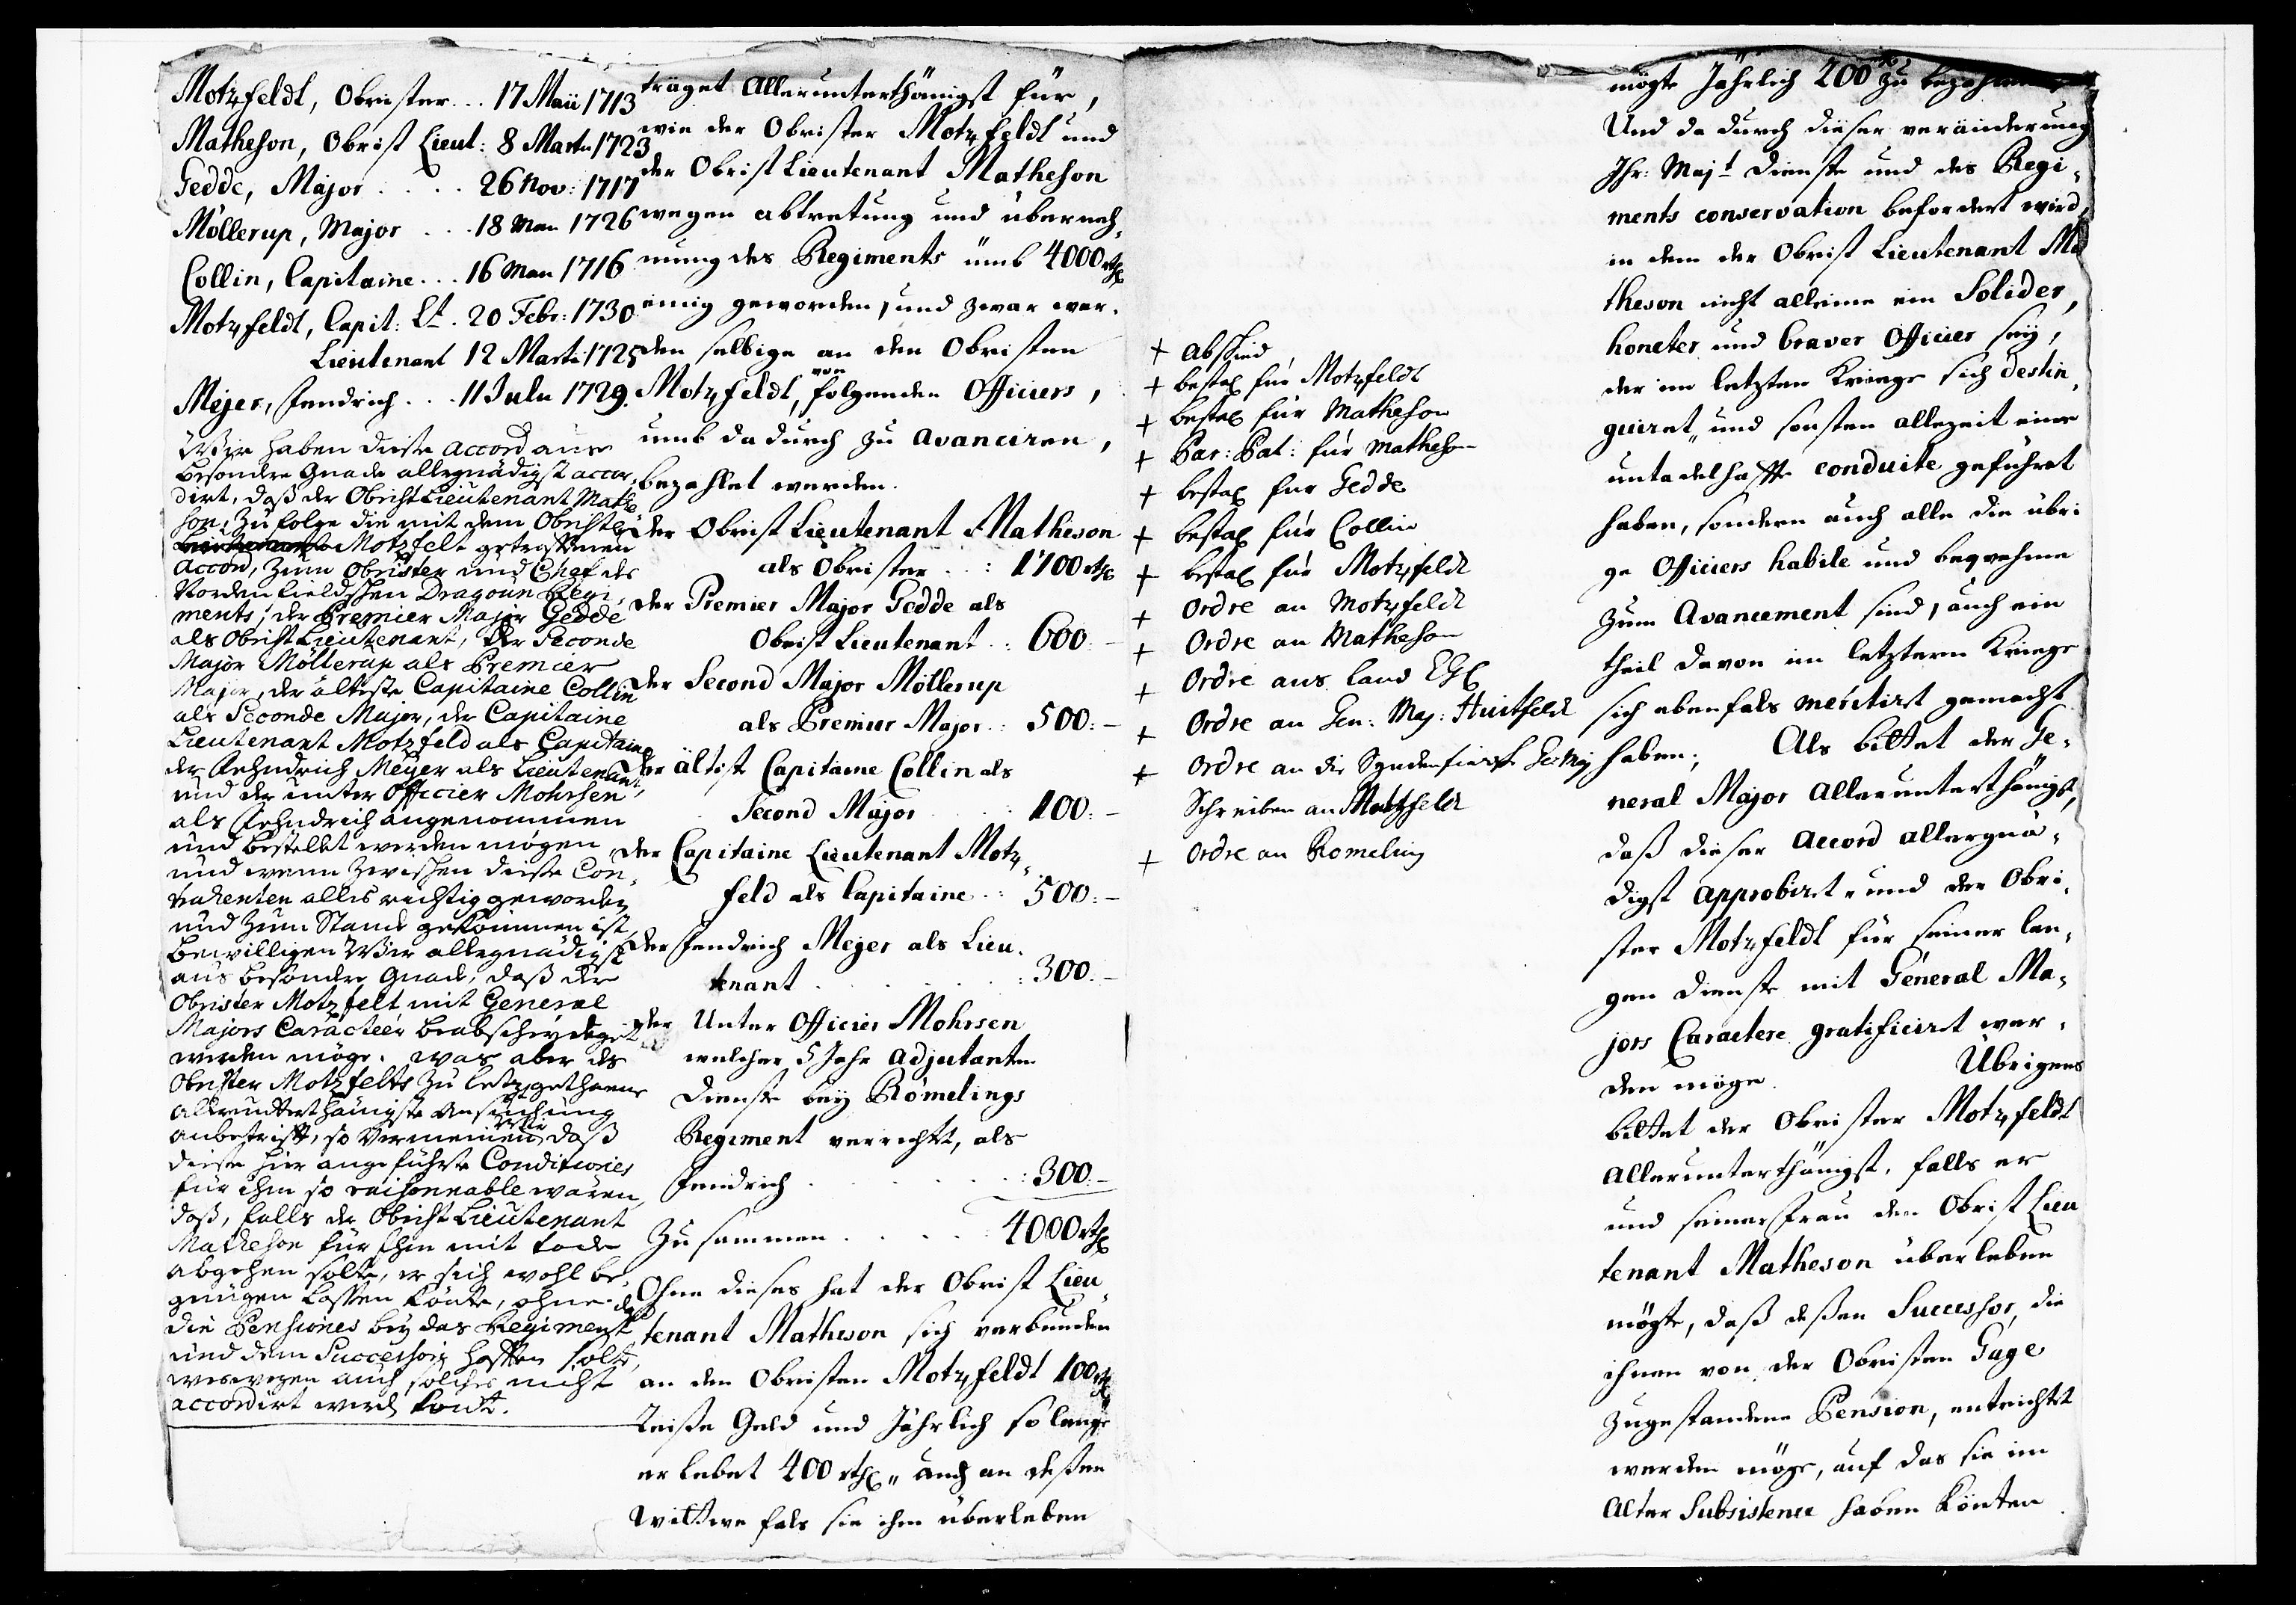 Motzfeldt, Obrister... 17 Maii 1713
Matheson, Obrist Lieut: 8 Marty 1723
Gedde, Major.... 26 Nov: 1717
Möllerup, Major... 18 Man 1726
Collin, Capitaine... 16 Man 1716
Motzfeldt, Capit: Lt. 20 Febr: 1730
Lieutenant 12 Marti 1725
Mejer, Fendrich... 11 Julii 1729.
Wir haben diese Accord aus
besondre Gnade allergnädigst accor,
dirt, daß der Obrist Lieutenant Mathe
son, zufolge die mit dem Obristen
Motzfelt getroffenen
Accord, zum Obrister und Chef des
Nordenfieldschen Dragoun Regi,
ments, der Premier Major Gedde
als Obrist Lieutenant, der Seconde
Major Möllerup als Premier
Major, der älteste Capitaine Collin
als Seconde Major, der Capitaine
Lieutenant Motzfeld als Capitaine
der Fehndrich Meyer als Lieutenant,
und der unter Officier Mohrsen
als Fehndrich angenommen
und bestellet werden mögen,
und wenn zwischen diese Con,
trahenten alles richtig geworden
und zum Stande gekommen ist,
bewilligen Wir allergnädigst
aus besondre Gnade, daß der
Obrister Motzfelt mit General
Majors Caracteer beabscheydiget
werden möge. was aber des
Obrister Motzfelts zu letz gethaene
allerunterthänigste Ansuchung
anbetrifft, so vermeinen Wir daß
diese hier angeführte Conditiones
für ihm so raisonnable wären,
daß, falls der Obrist Lieutenant
Matheson für Ihm mit tode
abgehen solte, er sich wohl be,
gnügen lassen könte, ohne daß
die Pensiones bey das Regiment
und dem Successori hafften solte,
weswegen auch solches nicht
accordirt werd kont.
träget Allerunterthänigst für,
wie der Obrister Motzfeldt und
der Obrist Lieutenant Matheson
wegen abtretung und überneh,
mung des Regiments umb 4000 rthl
einig geworden, und zwar wer.
den selbige an den Obristen
Motzfeldt, von folgenden Officiers,
umb dadurch zu avanciren,
bezahlet werden.
Der Obrist Lieutenant Matheson
als Obrister..: 1700 rthl
Der Premier Major Gedde als
Obrist Lieutenant..: 600:-
Der Second Major Möllerup
als Premier Major.: 500:-
Der ältiste Capitaine Collin als
Second Major : 100:-
Der Capitaine Lieutenant Motz,
feld als Capitaine..: 500:-
Der Fendrich Mejer als Lieu.
tenant......: 300.-
Der Unter Officier Mohrsen
welcher 5 Jahr Adjutanten
Dienste bey Römelings
Regiment verrichtet, als
Fendrich......: 300:-
Zusammen.....: 4000 rthl
Ohne dieses hat der Obrist Lieu,
tenant Matheson sich verbunden
an den Obristen Motzfeldt 100 rthl
Reise Geld und Jährlich so lange
er lebet 400 rthl„ auch an deßen
Wittwe fals sie ihm überleben
+ Abschied
+ bestal für Motzfeldt
+ bestal für Matheson
+ Par: Pat: für Matheson
+ bestal für Gedde
+ bestal für Collin
+ bestal für Motzfeldt
+ Ordre an Motzfeldt
+ Ordre an Matheson
+ Ordre ans Land
+ Ordre an Gen: Maj: Huitfeld
+ Ordre an die
Schreiben an Motzfeld
+ Ordre an Romeling
mögte Jährlich 200 rthl zu bezahlen
Und da durch dieser veränderung
Ihr: Majt Dienste und des Regi,
ments conservation befordert wird,
in dem der Obrist Lieutenant Ma
theson nicht alleine ein Solider,
honeter und braver Officier sey,
der im letzten Kriege sich destin,
guiret, und sonsten allezeit eine
untadelhaffte conduite geführet
haben, sondern auch alle die übri
ge Officiers habile und beqvehme
zum Avancement sind, auch ein
theil davon im letztern Kriege
sich ebenfals meritirt gemacht
haben; Als bittet der Ge,
neral Major Allerunterthänigst,
daß dieser Accord allergnä,
digst approbiret, und der Obri,
ster Motzfeldt für seiner lan,
gen Dienste mit General Ma,
jors Caractere gratificirt wer,
den möge. Übrigens
bittet der Obrister Motzfeldt
Allerunterthänigst, falls er
und seiner Frau den Obrist Lieu
tenant Matheson überleben
mögte, daß deßen Successor, die
ihnen von der Obristen Gage
zugestandene Pension, entrichtet
werden möge, auf das sie im
Alter Subsistence haben könten